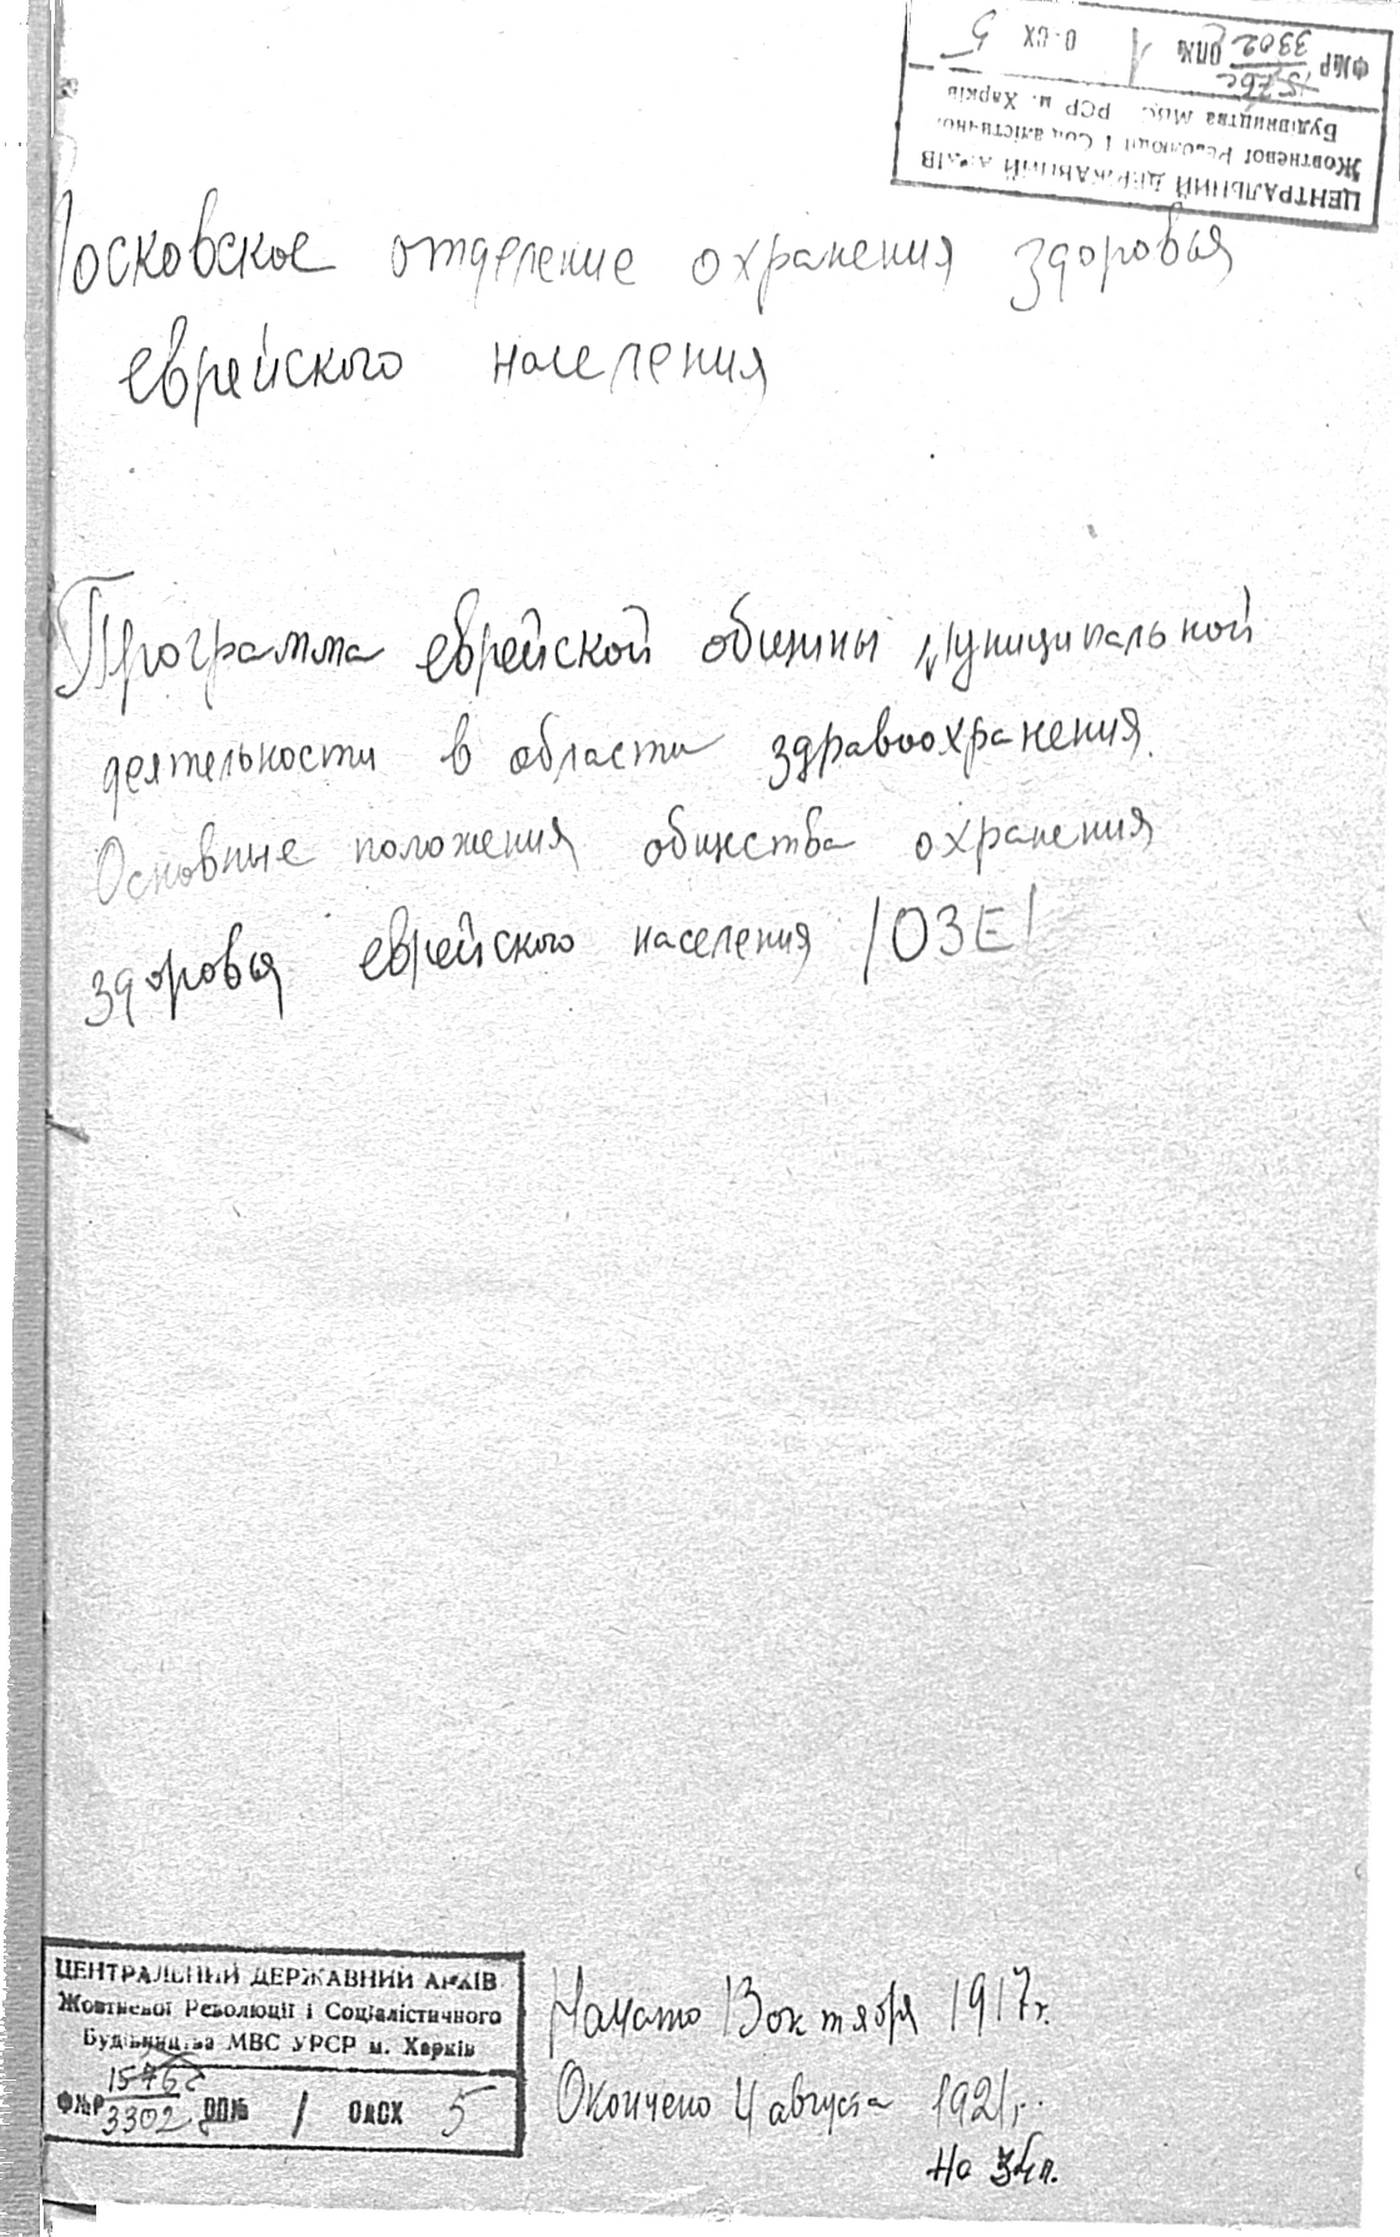 ЦЕНТРАЛЬНИЙ ДЕРЖАВНИЙ АРХІВ
Жовтневої Революції і Соціалістично
Будівництва РСР м. Харків
Ф№Р 1576с 3302 ОП№ 1 О-СХ 5
Московское отделение охранения здоровья
еврейского населения
Программа еврейской общины муниципальной
деятельности в области здравоохранения.
Основные положения общества охранения
здоровья еврейского населения /ОЗЕ/
ЦЕНТРАЛЬНИЙ ДЕРЖАВНИЙ АРХІВ
Жовтневої Революції і Соціалістичного
Будівництва МВС УРСР м. Харків
Ф№Р 1576с 3302 ОП№ 1 ОДСХ 5
Начато 13 октября 1917г.
Окончено 4 августа 1921г.
На л.